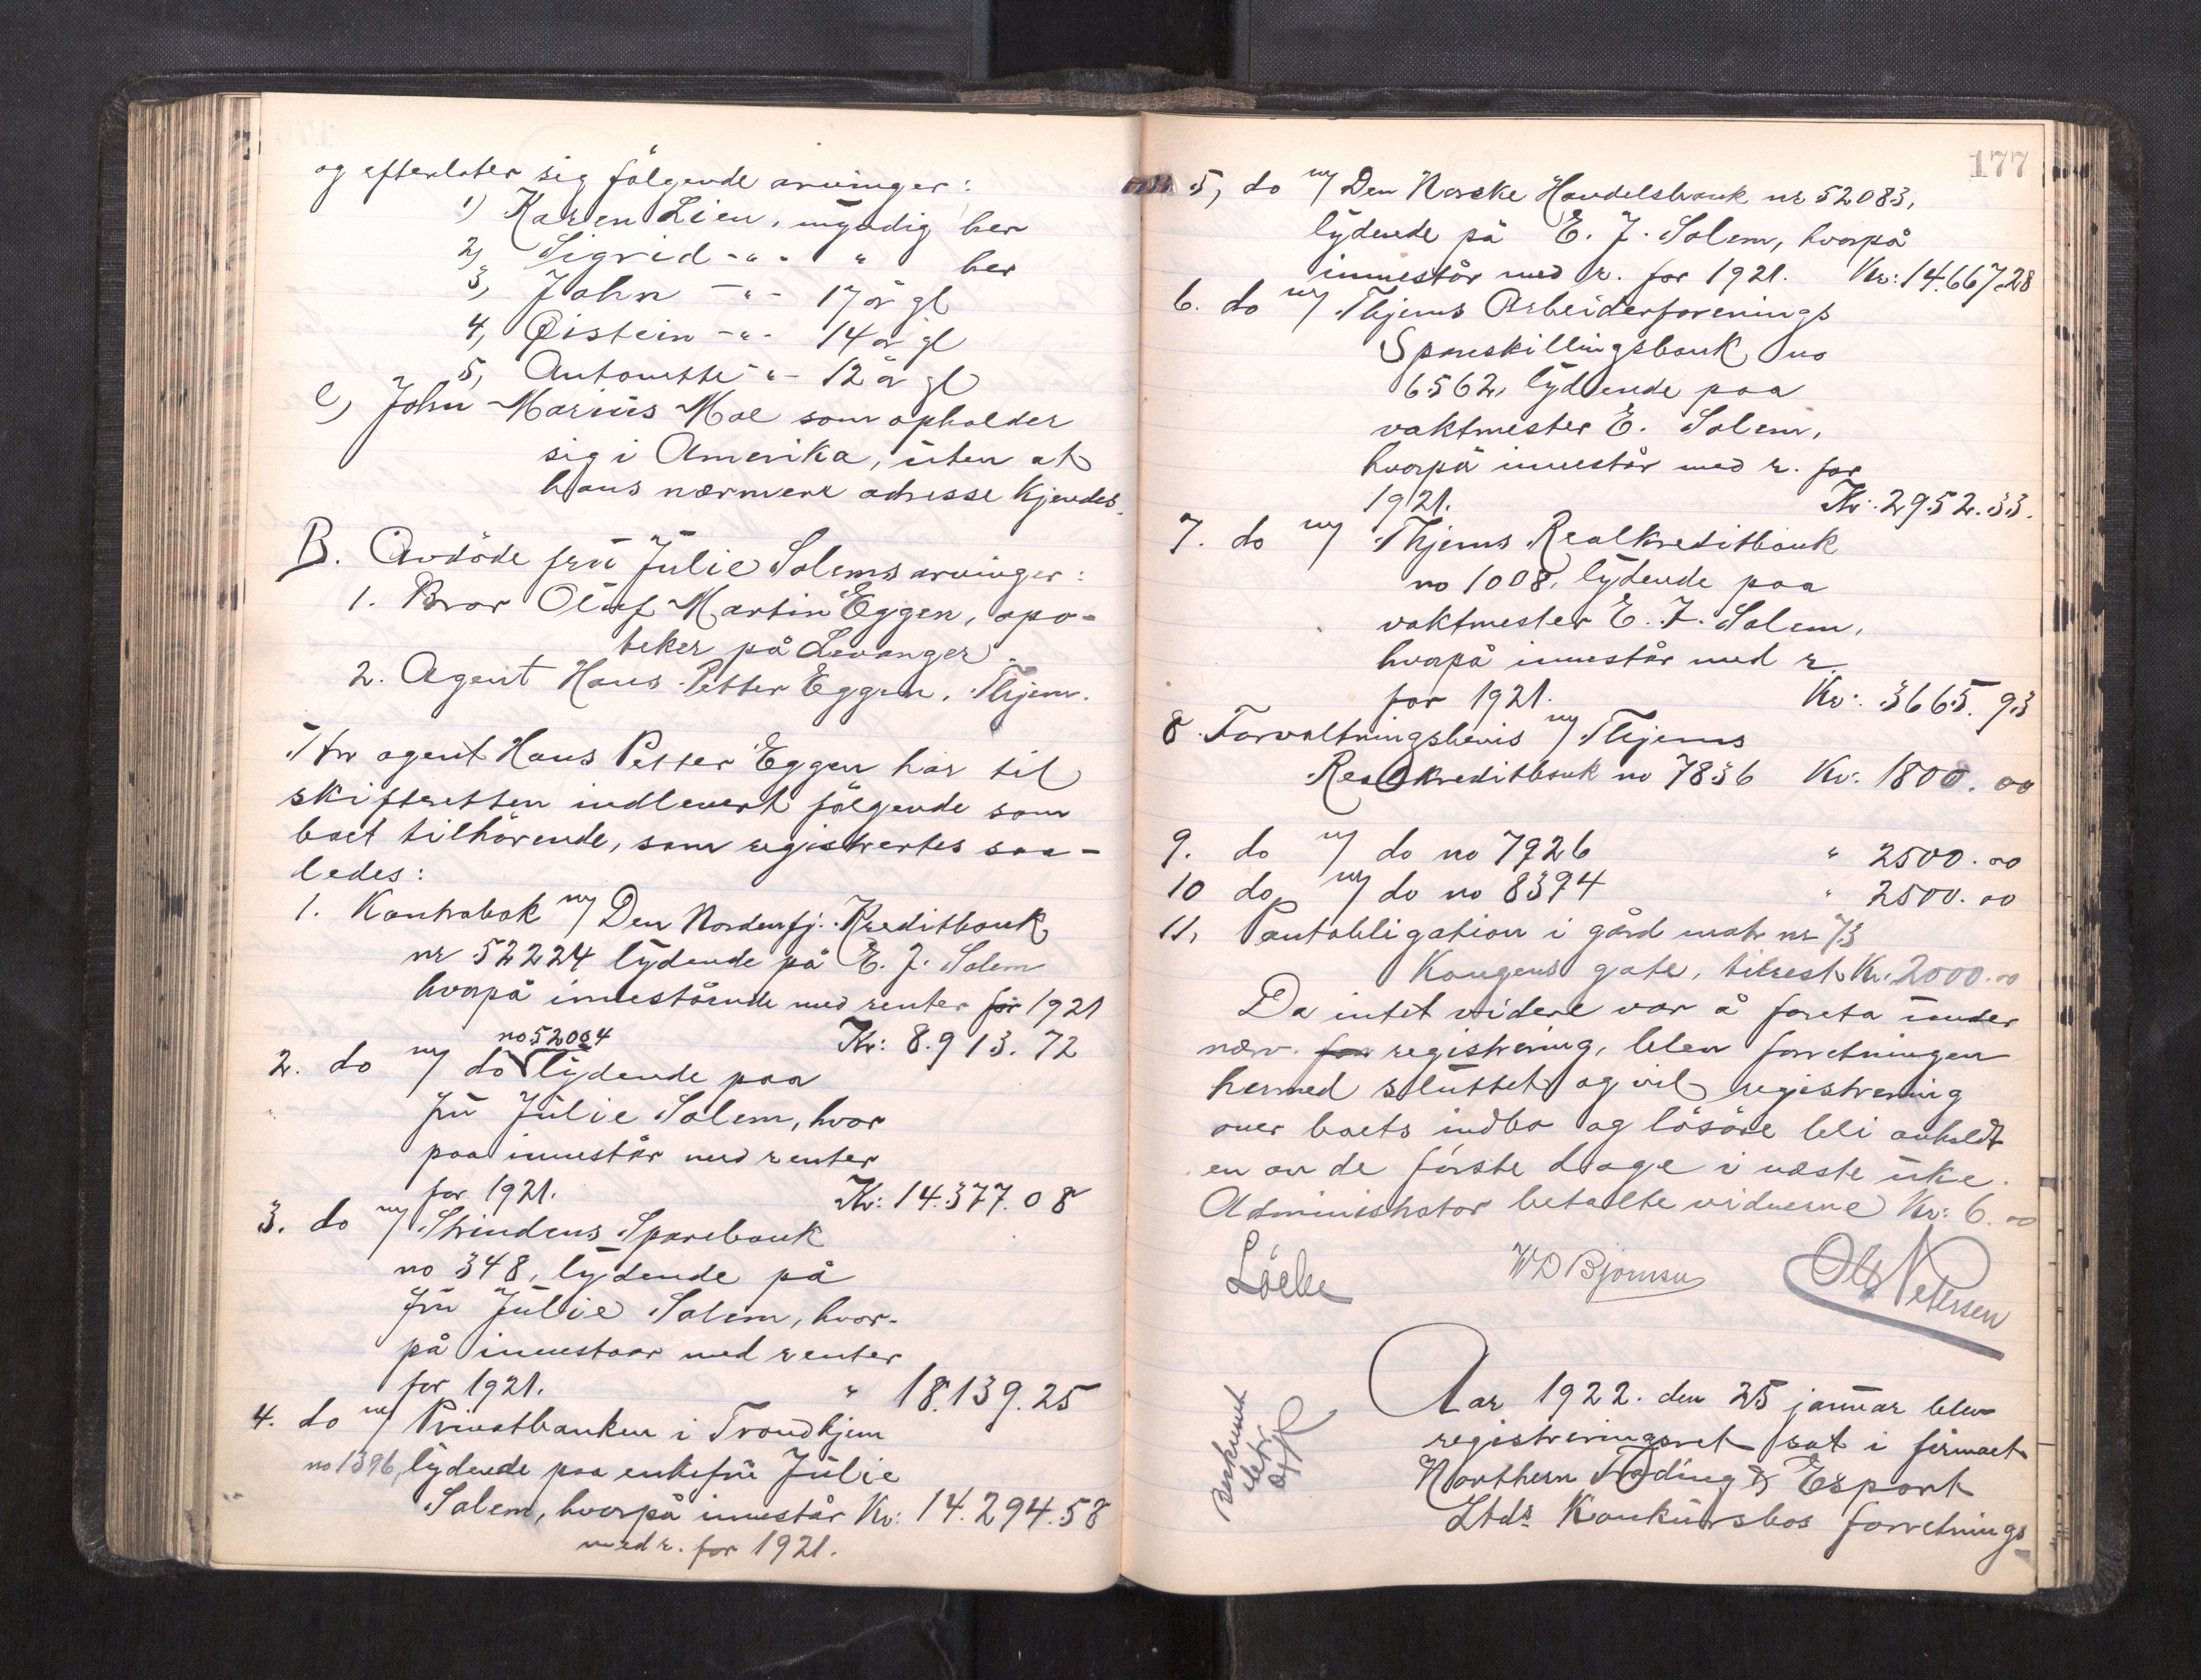 og efterlater sig følgende arvinger:
1) Karen Lien, myndig her
2) Sigrid -"- " her
3, John -"- 17 år gl
4, Øistein -"- 14 år gl
5, Antonette -"- 12 år gl
e, John Marius Moe som opholder
sig i Amerika, uten at
hans nærmere adresse kjendes.
B. Avdöde frü Julie Solems arvinger:
1. Bror Oluf Martin Eggen, apo-
teker på Levanger.
2. Agent Hans Petter Eggen, Thjem.
Hr agent Hans Petter Eggen har til
skifteretten indlevert følgende som
boet tilhörende, som registrertes saa-
ledes:
1. Kontrabok m/ Den Nordenfj. Kreditbank
nr 52224 lydende på E. J. Solem
hvorpå innestående med renter for 1921
Kr: 8.913.72
no 52004
2. do m/ do lydende paa
frü Julie Solem, hvor
paa innestår med renter
for 1921. Kr: 14.377.08
3. do m/ Strindens Sparebank
no 348, lydende på
frü Julie Solem, hvor-
på innestaar med renter
for 1921. " 18.139.25
4. do m/ Privatbanken i Trondhjem
no 1396, lydende paa enkefrü Julie
Solem, hvorpå innestår Kr: 14.294.58
med r. for 1921.
177
5, do m/ Den Norske Handelsbank nr 52083,
lydende på E. J. Solem, hvorpå
innestår med r. for 1921. Kr: 14.667.28
6. do m/ Thjems Arbeiderforenings
Spareskillingsbank no
6562, lydende paa
vaktmester E. Solem,
hvorpå innestår med r. for
1921. Kr: 2952.33.
7. do m/ Thjems Realkreditbank
no 1008, lydende paa
vaktmester E. J. Solem,
hvorpå innestår med r.
for 1921. Kr: 3665.93
8. Forvaltningsbevis m/ Thjems
Realkreditbank no 7836 Kr: 1800.00
9. do m/ do no 7926 " 2500.00
10 do m/ do no 8394 " 2500.00
11, Pantobligation i gård matr nr 73
Kongens gate, tilrest Kr. 2000.00
Da intet videre var å foreta under
nærv. for registrering, blev forretningen
hermed sluttet og vil registrering
over boets indbo og lösöre bli avholdt
en av de første dage i næste uke.
Administrator betalte vidnerne Kr: 6.00
W D Bjornsen
Ole Petersen
Aar 1922. den 25 januar blev
registreringsret sat i firmaet
Northern Trading & Export
Ltds Konkursbos forretnings-